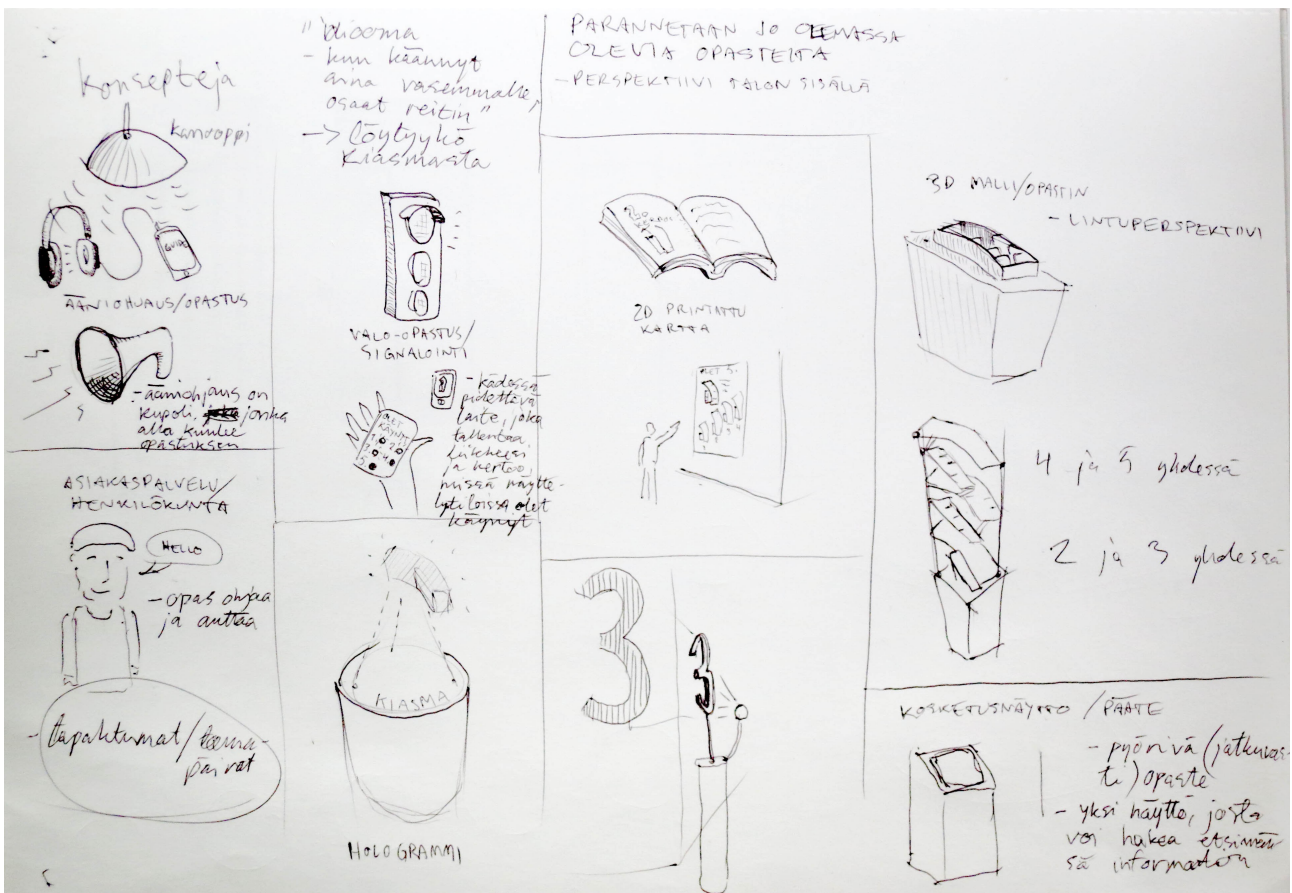 konsepteja
kanooppi
GUIDE
ÄÄNIOHJAUS/OPASTUS
- ääniohjaus on
kupoli, jonka
alla kuulee
opastuksen
ASIAKASPALVELU/
HENKILÖKUNTA
HELLO
- opas ohjaa
ja auttaa
- tapahtumat/teema-
päivät
"idiooma
- kun käännyt
aina vasemmalle,
osaat reitin"
-> löytyykö
Kiasmasta
VALO-OPASTUS/
SIGNALOINTI
OLET
KÄYNYT
1 2
3 4
5
- kädessä
pidettävä
laite, joka
tallentaa
liikkeesi
ja kertoo,
missä näytte-
lytiloissa olet
käynyt
KIASMA
HOLOGRAMMI
PARANNETAAN JO OLEMASSA
OLEVIA OPASTEITA
- PERSPEKTIIVI TALON SISÄLLÄ
2D PRINTATTU
KARTTA
OLET 5.
3
3
3D MALLI/OPASTIN
- LINTUPERSPEKTIIVI
4 ja 5 yhdessä
2 ja 3 yhdessä
KOSKETUSNÄYTTÖ / PÄÄTE
- pyörivä (jatkuvas-
ti) opaste
- yksi näyttö, josta
voi hakea etsimän-
sä information